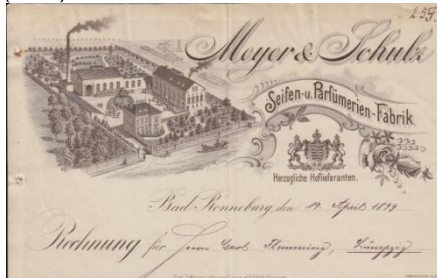 259
Meyer & Schulz
Seifen-u. Parfümerien-Fabrik.
Herzogliche Hoflieferanten.
Bad-Ronneburg, den 19. April 1899
Rechnung für Herrn Carl Flemming,